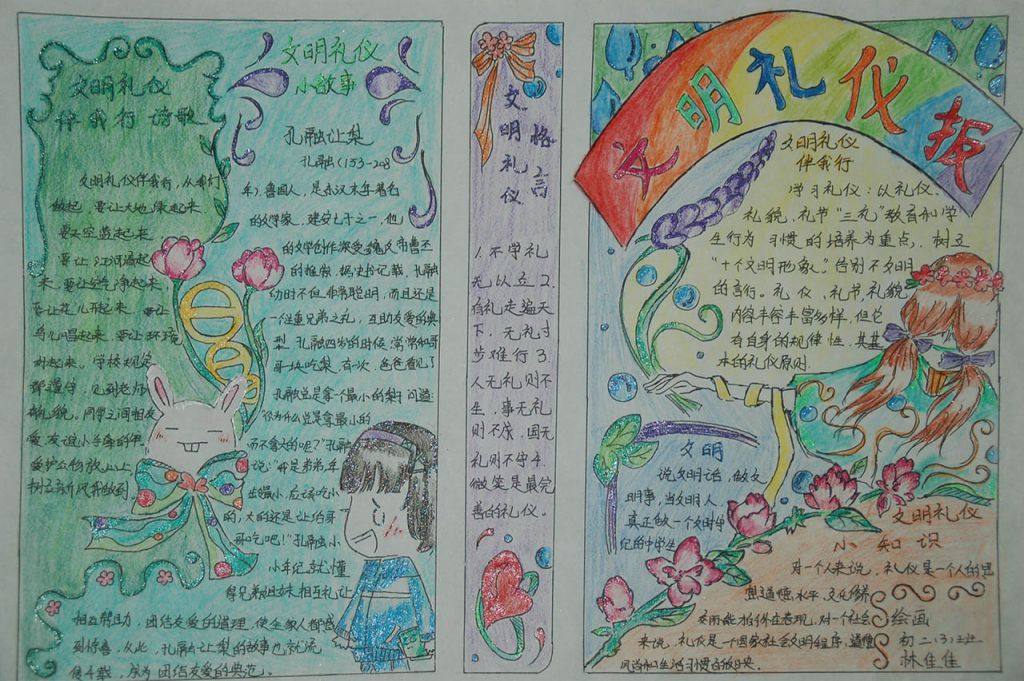 文明礼仪
伴我行 诗歌
文明礼仪伴我行，从我们
做起 要让大地绿起来
要天空蓝起来
要让江河清起
来，要让空气净起来，
让花儿开起来
鸟儿唱起来，要让环境
好起来。学校规定
要遵守，见到老师
有礼貌。同学之间相友
爱，友谊小手
爱护公物放心上
树立新风我做到
文明礼仪
小故事
孔融让梨
孔融（153-208
年）鲁国人，是东汉末年著名
的文学家，建安七子之一，他
的文学创作深受魏文帝曹丕
的推崇，据史书记载，孔融
幼时不但非常聪明，而且还是
一个注重兄弟之礼，互助友爱的典
型 孔融四岁的时候，常常和哥
哥一块吃梨，有次，爸爸看见了
孔融总是拿个最小的梨子问道：
“你为什么总是拿最小的
而不拿大的呢？”孔融
说：“我是弟弟，年
纪最小，应该吃小
的，大的还是让给哥
哥吃吧！”孔融小
小年纪就懂
得兄弟姐妹相互礼让
相互帮助，团结友爱的道理，使全家人都感
到惊喜，从此，孔融让梨的故事也就流
传千载，成为团结友爱的典范。
文明礼仪
格言
1.不学礼
无以立 2.
有礼走遍天
下，无礼寸
步难行 3.
人无礼则不
生，事无礼
则不成，国无
礼则不守 4.
微笑是最完
善的礼仪。
文明礼仪报
文明礼仪
伴我行
学习礼仪：以礼仪、
礼貌，礼节“三礼”教育和学
生行为 习惯的培养为重点，树立
“十个文明形象”告别不文明
的言行。礼仪、礼节，礼貌
内容丰富多样，但它
有自身的规律性，其基
本的礼仪原则
文明
说文明话，做文
明事，当文明人，
真正做一个文明
纪的中学生
文明礼仪
小知识
对一个人来说，礼仪是一个人的思
想道德水平，文化修养
交际能力的外在表现，对一个社会
来说，礼仪是一个国家社会文明程度，道德
风尚和生活习惯的反映
绘画
初二（3）班
林佳佳